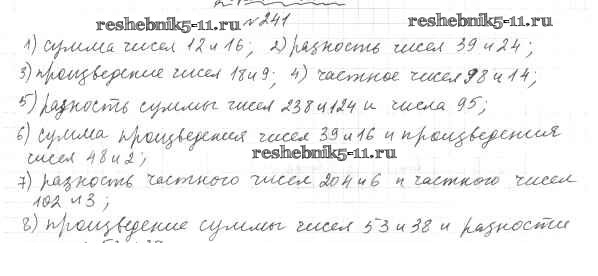 reshebnik5-11.ru
№241
reshebnik5-11.ru
1) сумма чисел 12 и 16; 2) разность чисел 39 и 24;
3) произведение чисел 18 и 9; 4) частное чисел 98 и 14;
5) разность суммы чисел 238 и 124 и числа 95;
6) сумма произведения чисел 39 и 16 и произведения
чисел 48 и 2;
reshebnik5-11.ru
7) разность частного чисел 204 и 6 и частного чисел
102 и 3;
8) произведение суммы чисел 53 и 38 и разности